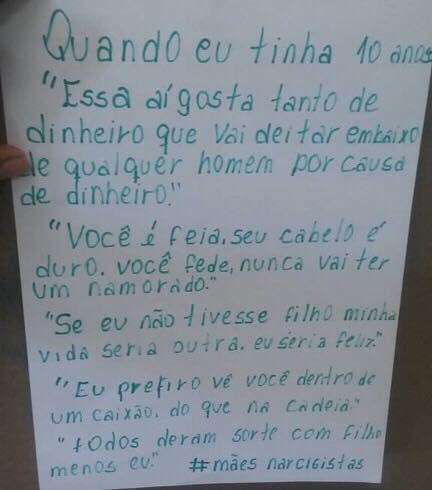 Quando eu tinha 10 anos
"Essa aí gosta tanto de
dinheiro que vai deitar embaixo
de qualquer homem por causa
de dinheiro."
"Você é feia, seu cabelo é
duro. você fede, nunca vai ter
um namorado."
"Se eu não tivesse filho minha
vida seria outra. eu seria feliz."
"Eu prefiro vê você dentro de
um caixão. do que na cadeia"
"todos deram sorte com filho
menos eu." #mães narcisistas